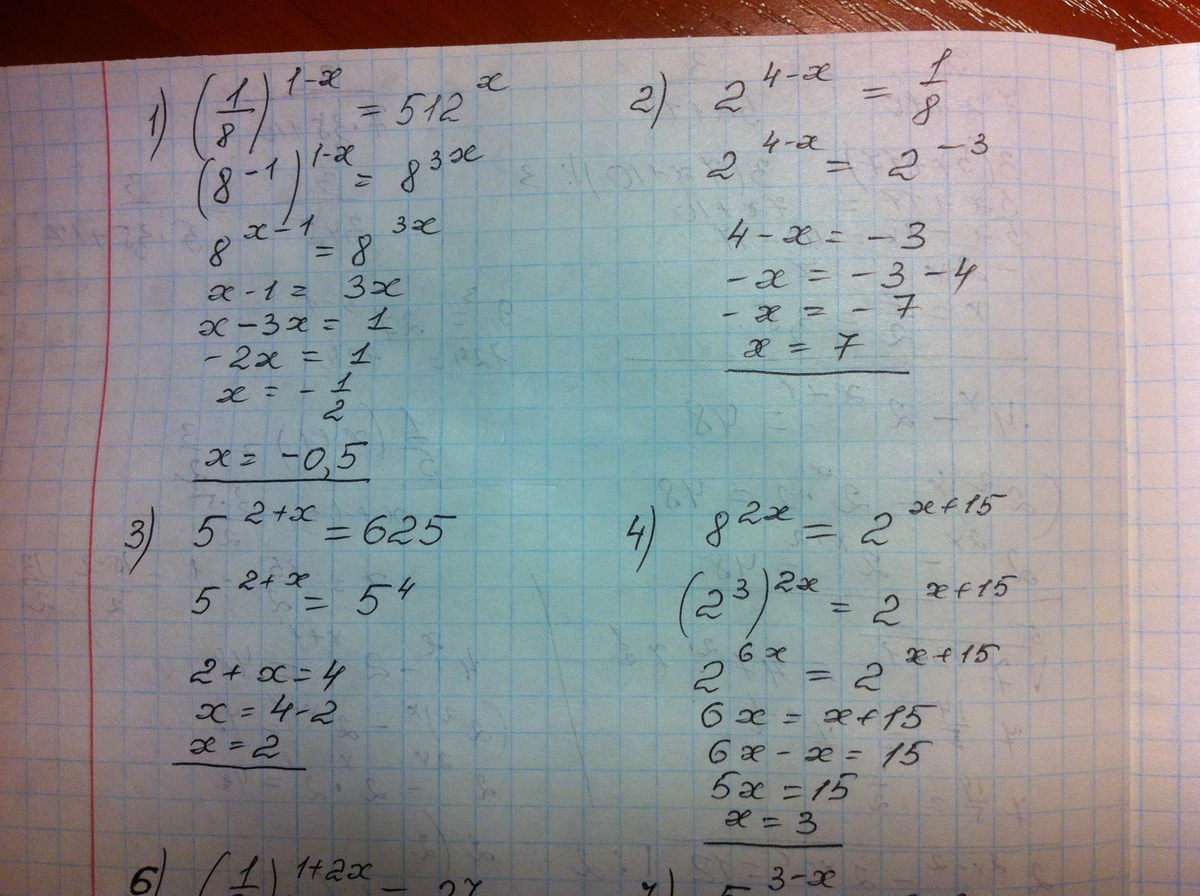 1) (1/8)^(1-x) = 512^x
(8^(-1))^(1-x) = 8^(3x)
8^(x-1) = 8^(3x)
x-1 = 3x
x-3x = 1
-2x = 1
x = -1/2
x = -0,5
2) 2^(4-x) = 1/8
2^(4-x) = 2^(-3)
4-x = -3
-x = -3-4
-x = -7
x = 7
3) 5^(2+x) = 625
5^(2+x) = 5^4
2+x = 4
x = 4-2
x = 2
4) 8^(2x) = 2^(x+15)
(2^3)^(2x) = 2^(x+15)
2^(6x) = 2^(x+15)
6x = x+15
6x-x = 15
5x = 15
x = 3
6) (1/ )^(1+2x) = 27
5^(3-x)